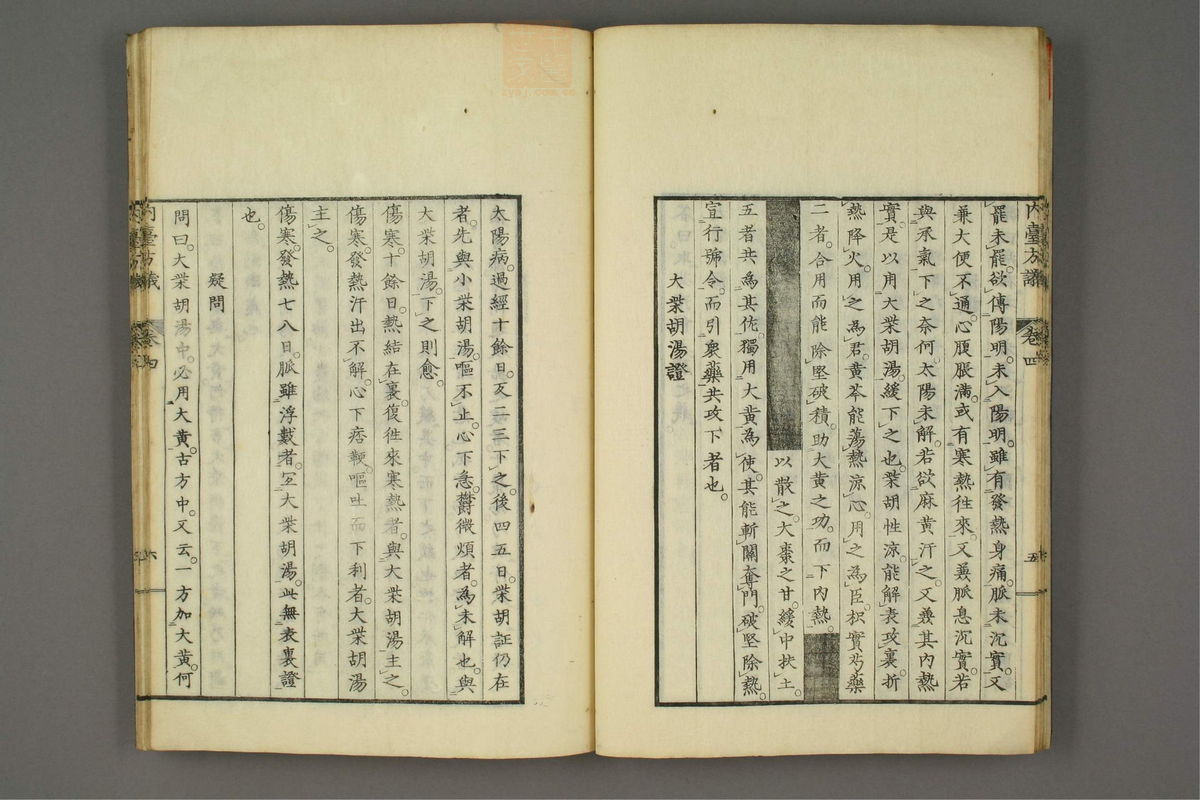 內臺方議 卷四 五
罷未罷。欲傳陽明。未入陽明。雖有發熱身痛。脈未沉實。又
兼大便不通。心腹脹滿。或有寒熱徃來。又兼脈息沉實。若
與承氣下之奈何。太陽未解。若欲麻黃汗之。又兼其內熱
實。是以用大柴胡湯緩下之也。柴胡性涼。能解表攻裏。折
熱降火。用之為君。黃芩能蕩熱涼心。用之為臣。枳實芍藥
二者。合用而能除堅破積。助大黃之功。而下內熱。
以散之。大棗之甘緩中扶土
五者共為其佐。獨用大黃為使。其能斬關奪門。破堅除熱。
宣行號令。而引衆藥共攻下者也。
大柴胡湯證
太陽病。過經十餘日。反二三下之。後四五日。柴胡証仍在
者。先與小柴胡湯。嘔不止。心下急。欝微煩者。為未解也。與
大柴胡湯。下之則愈。
傷寒。十餘日。熱結在裏。復徃來寒熱者。與大柴胡湯主之。
傷寒。發熱汗出不解。心下痞鞕。嘔吐而下利者。大柴胡湯
主之。
傷寒。發熱七八日。脈雖浮數者。宜大柴胡湯。此無表裏證
也。
疑問
問曰。大柴胡湯中。必用大黃。古方中。又云。一方加大黃。何
內臺方議 卷四 六